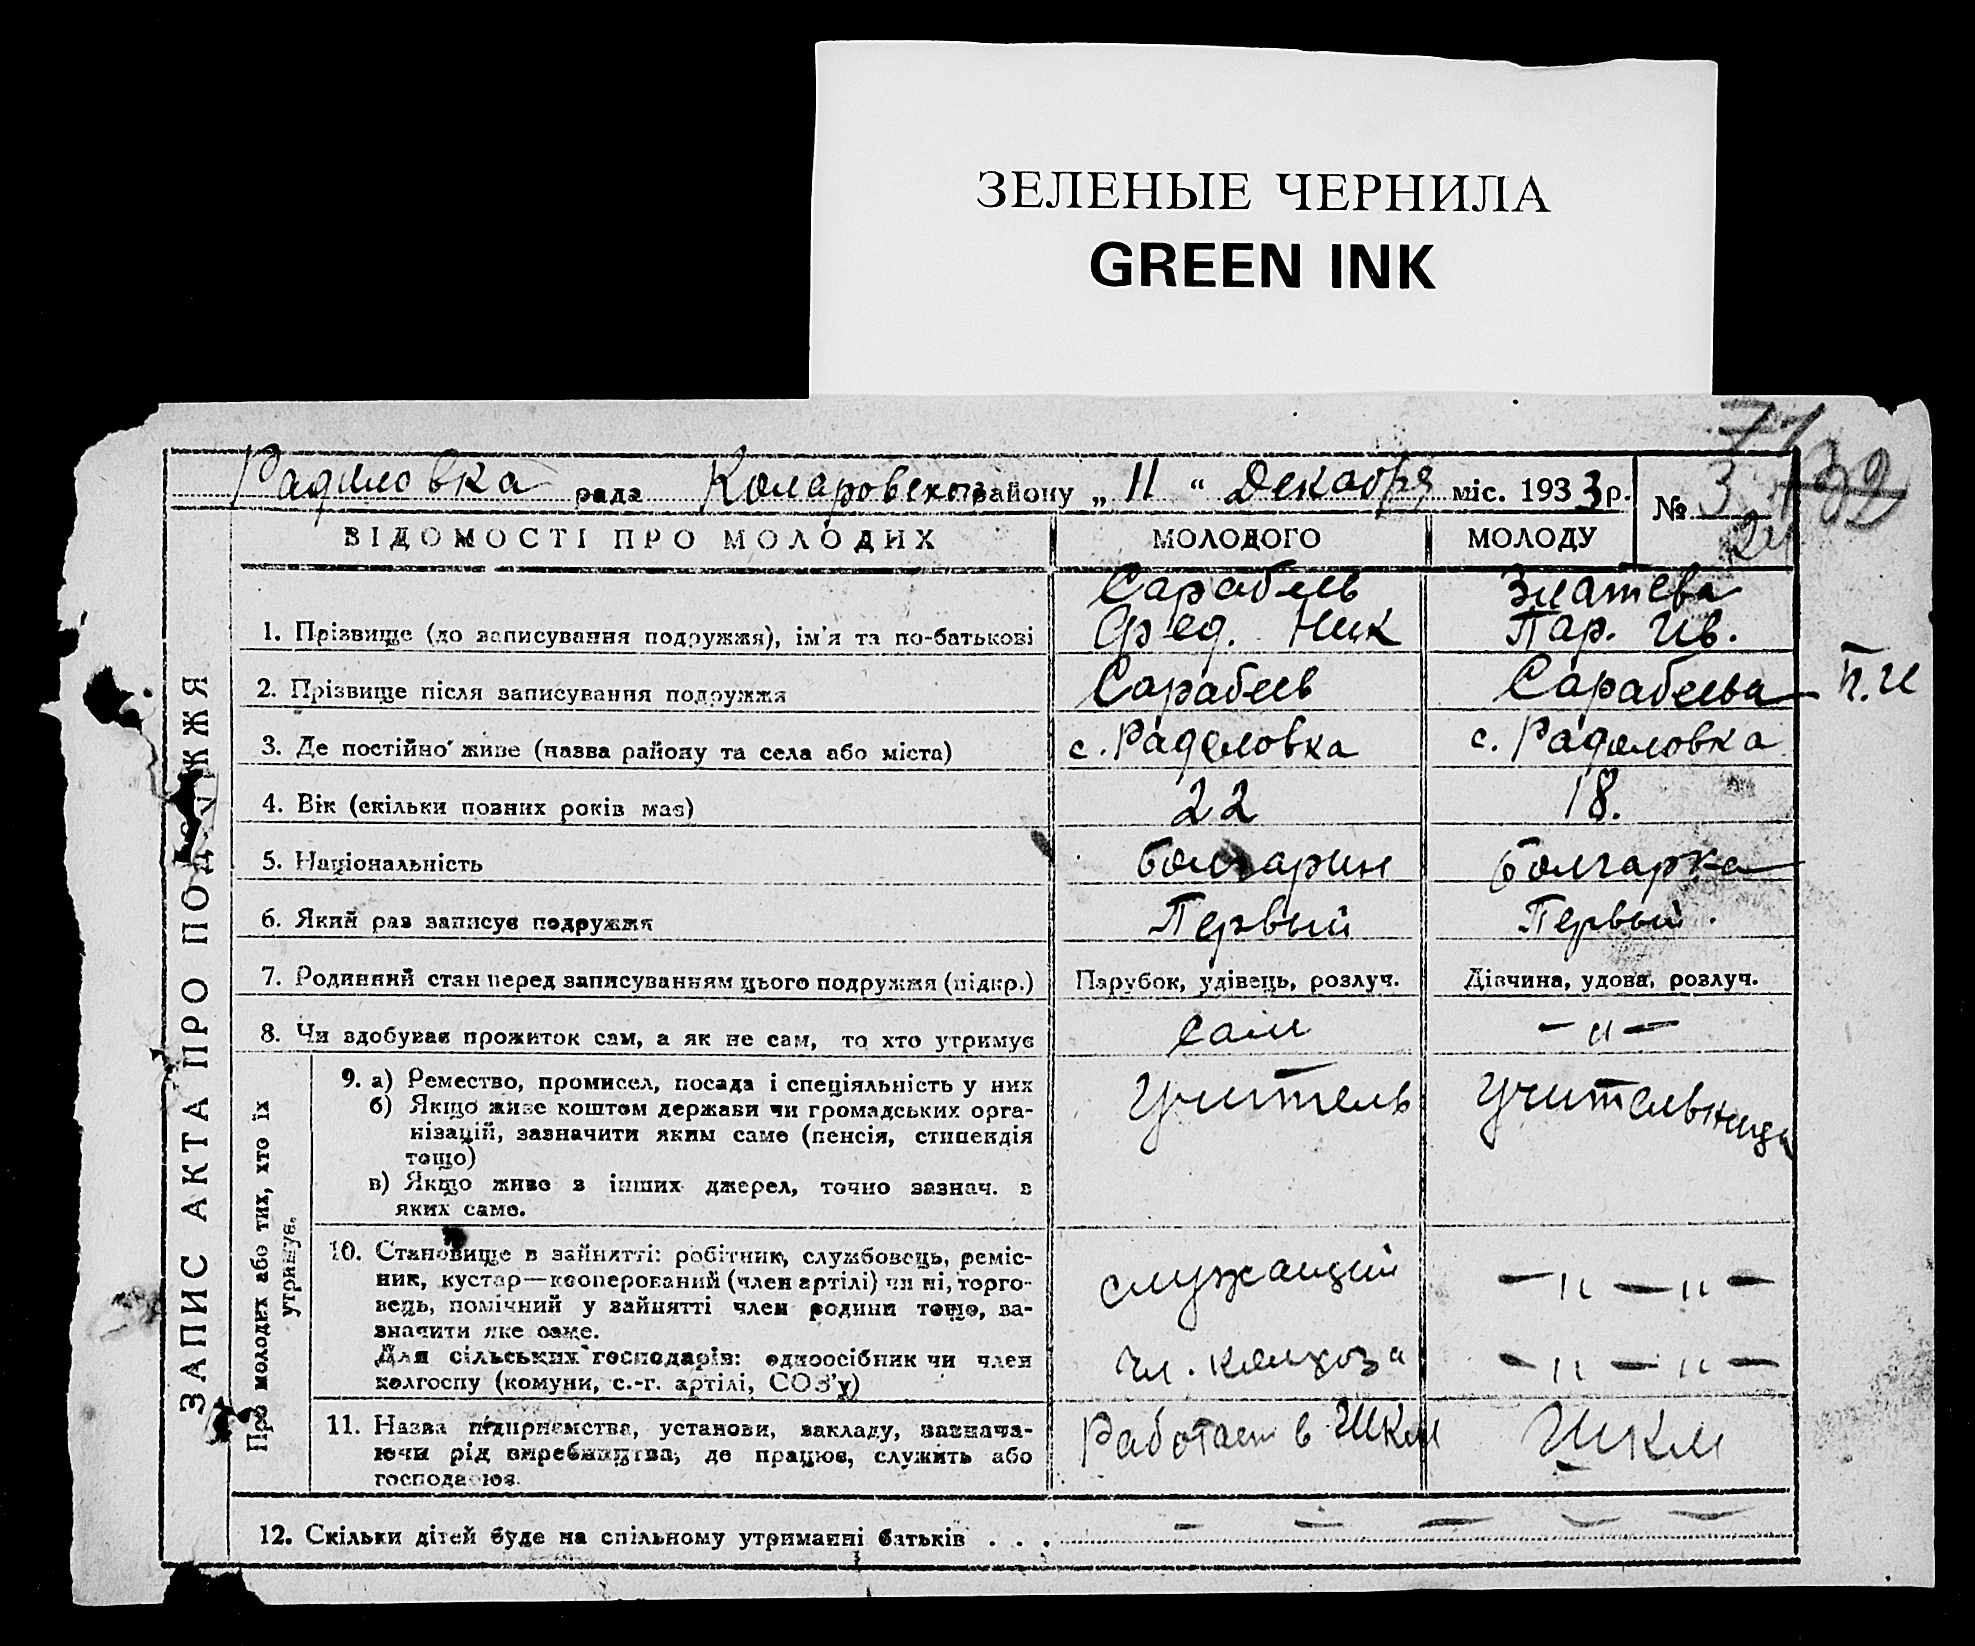 ЗЕЛЕНЫЕ ЧЕРНИЛА
GREEN INK
71
Радоловка рада Коларовского району „ 11 “ Декабря міс. 1933 р.
№ 3
32
24
ЗАПИС АКТА ПРО ПОДРУЖЖЯ
ВІДОМОСТІ ПРО МОЛОДИХ МОЛОДОГО МОЛОДУ
Сарабеев Златева
1. Прізвище (до записування подружжя), ім'я та по-батькові Фед. Ник Пар. Ив.
2. Прізвище після записування подружжя Сарабеев Сарабеева П.И
3. Де постійно живе (назва району та села або міста) с. Радоловка с. Радоловка
4. Вік (скільки повних років має) 22 18.
5. Національність болгарин болгарка
6. Який раз записує подружжя Первый Первый.
7. Родинний стан перед записуванням цього подружжя (підкр.) Парубок, удівець, розлуч. Дівчина, удова, розлуч.
8. Чи здобуває прожиток сам, а як не сам, то хто утримує сам – „ –
Про молодих або тих, хто їх
утримує.
9. а) Ремество, промисел, посада і спеціяльність у них Учитель Учительница
б) Якщо живе коштом держави чи громадських орга-
нізацій, зазначити яким саме (пенсія, стипендія
тощо)
в) Якщо живе з інших джерел, точно зазнач. з
яких саме.
10. Становище в зайнятті: робітник, службовець, реміс-
ник, кустар—кооперований (член артілі) чи ні, торго- служащий – „ – „ –
вець, помічний у зайнятті член родини тощо, за-
значити яке саме.
Для сільських господарів: одноосібник чи член чл. колхоза – „ – „ –
колгоспу (комуни, с.-г. артілі, СОЗ'у)
11. Назва підприємства, установи, закладу, зазнача- Работает в Шкм Шкм
ючи рід виробництва, де працює, служить або
господарює.
12. Скільки дітей буде на спільному утриманні батьків . . . – – – – –